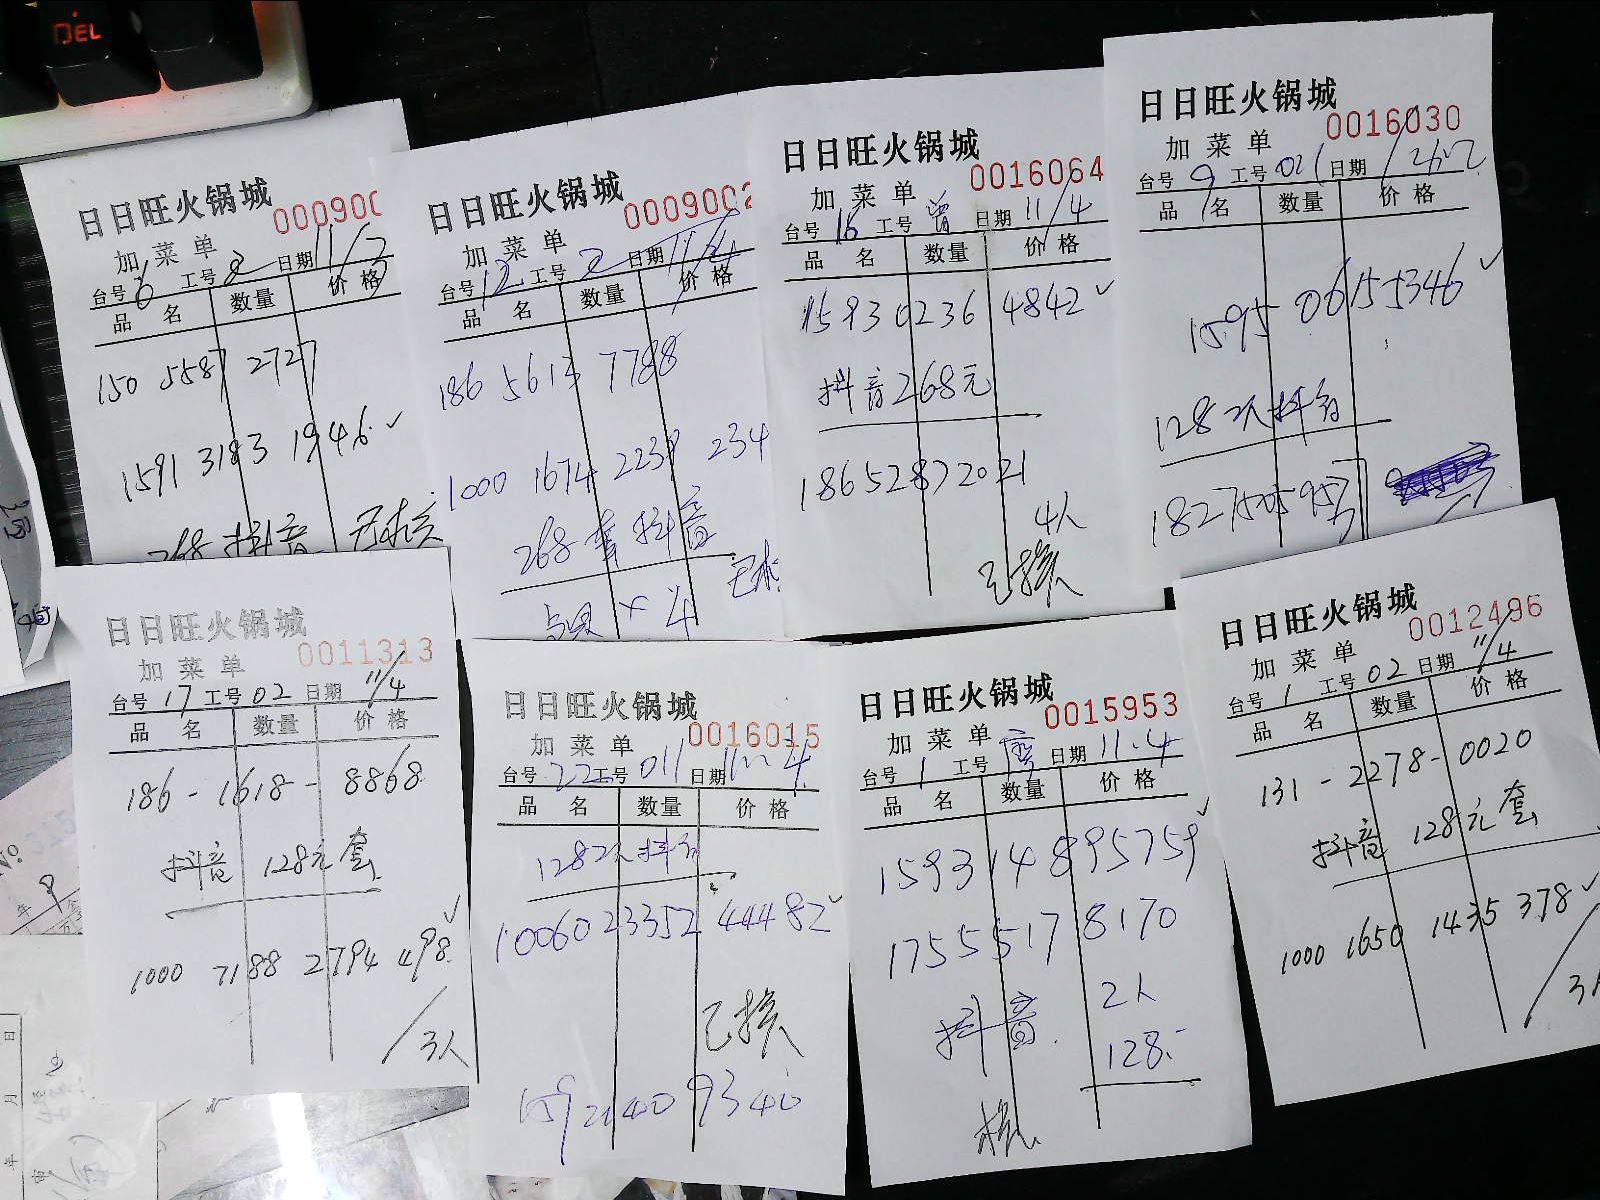 DEL
日日旺火锅城
000900
加菜单
台号 6 工号 2 日期 11/3
品名 数量 价格
150 5587 2727
1591 3183 1946 ✓
268 抖音 已核
日日旺火锅城
0009002
加菜单
台号 12 工号 2 日期 11/4
品名 数量 价格
186 5613 7788
1000 1674 2239 234
268 套 抖音
已核
日日旺火锅城
0016064
加菜单
台号 16 工号 曾 日期 11/4
品名 数量 价格
1593 0236 4842 ✓
抖音268元
18652872021
4人
已核
日日旺火锅城
0016030
加菜单
台号 9 工号 021 日期
品名 数量 价格
1595 0615 5346 ✓
128 抖音
日日旺火锅城
0011313
加菜单
台号 17 工号 02 日期 11/4
品名 数量 价格
186-1618-8868
抖音 128元套
1000 7188 2794 498 ✓
/3人
日日旺火锅城
0016015
加菜单
台号 22 工号 011 日期 11.4
品名 数量 价格
128 抖音
10060 23352 44482 ✓
已核
159 2140 9340
日日旺火锅城
0015953
加菜单
台号 1 工号 廖 日期 11.4
品名 数量 价格
159314895759 ✓
1755517 8170
抖音 2人
128.-
核
日日旺火锅城
0012496
加菜单
台号 1 工号 02 日期 11/4
品名 数量 价格
131-2278-0020
抖音 128元套
1000 1650 1435 378 ✓
/3人